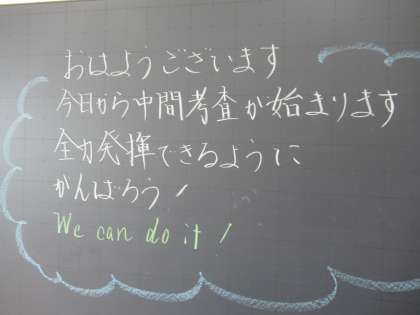 おはようございます
今日から中間考査が始まります
全力発揮できるように
がんばろう!
We can do it!